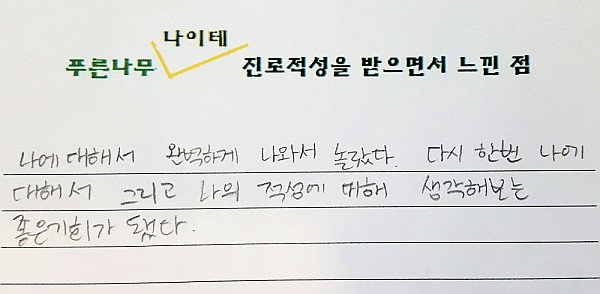 나이테
푸른나무 진로적성을 받으면서 느낀 점
나에 대해서 완벽하게 나와서 놀랐다. 다시 한번 나에
대해서 그리고 나의 적성에 대해 생각해보는
좋은기회가 됐다.